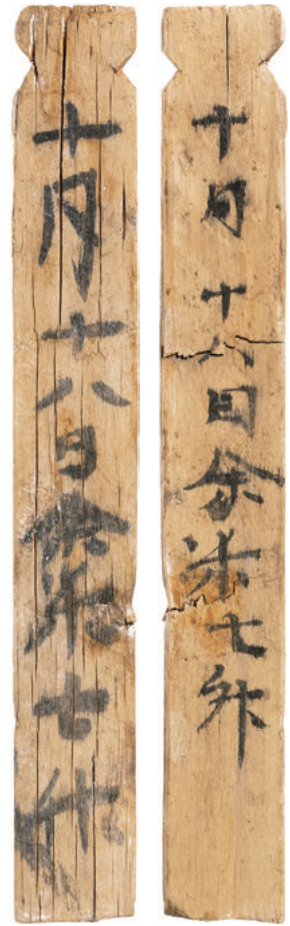 十月十八日余米七升
十月十八日余米七升